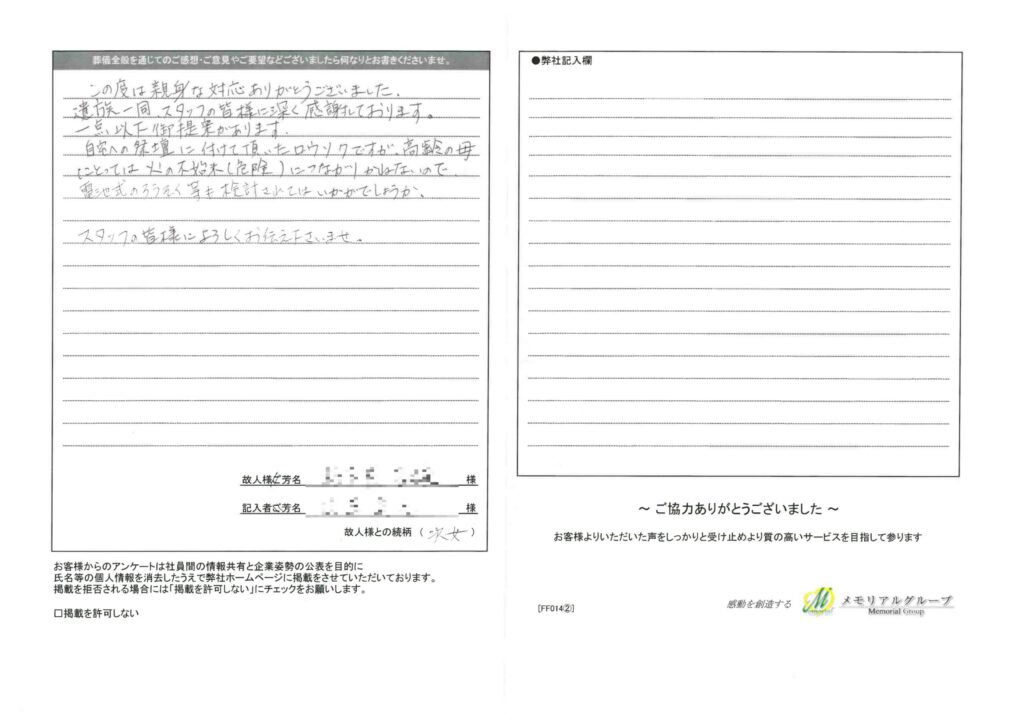 葬儀全般を通じてのご感想・ご意見やご要望などございましたら何なりとお書きくださいませ。
この度は親身な対応ありがとうございました。
遺族一同、スタッフの皆様に深く感謝しております。
一点、以下御提案があります。
自宅への祭壇に付けて頂いたロウソクですが、高齢の母
にとっては火の不始末(危険)につながりかねないので、
電池式のろうそく等も検討されてはいかがでしょうか。
スタッフの皆様によろしくお伝え下さいませ。
故人様ご芳名 様
記入者ご芳名 様
故人様との続柄 (次女)
お客様からのアンケートは社員間の情報共有と企業姿勢の公表を目的に
氏名等の個人情報を消去したうえで弊社ホームページに掲載をさせていただいております。
掲載を拒否される場合には「掲載を許可しない」にチェックをお願いします。
□掲載を許可しない
●弊社記入欄
~ ご協力ありがとうございました ~
お客様よりいただいた声をしっかりと受け止めより質の高いサービスを目指して参ります
[FF014②]
感動を創造する
M
Memorial
メモリアルグループ
Memorial Group